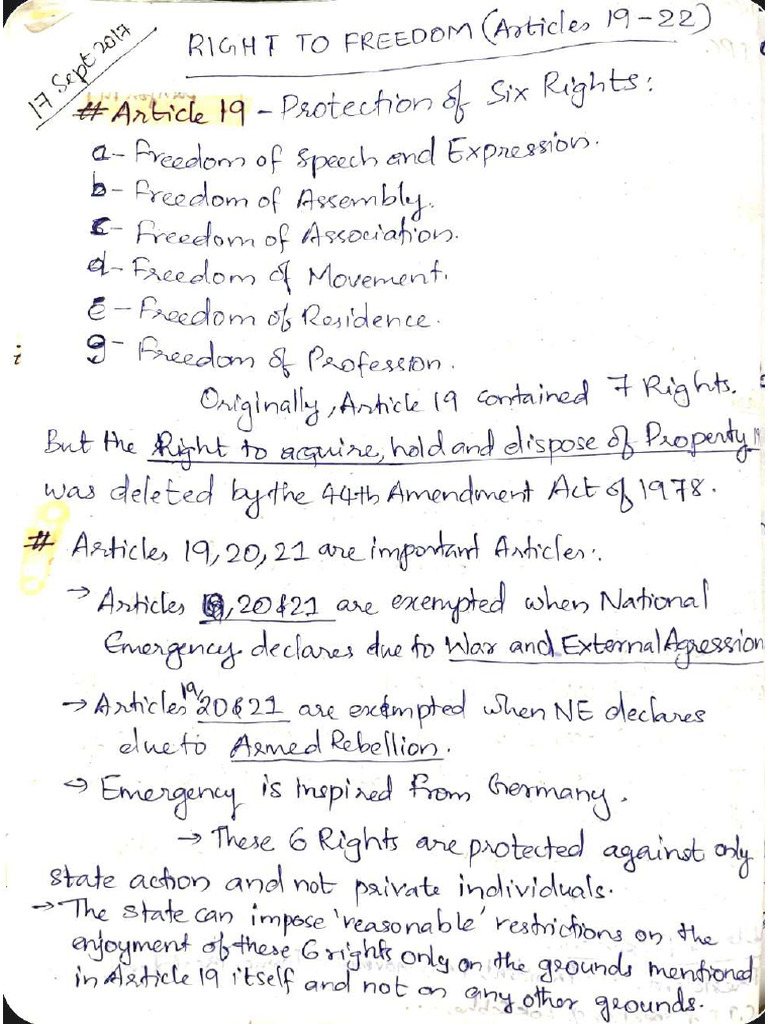 17 Sept 2017
RIGHT TO FREEDOM (Articles 19-22)
# Article 19 - Protection of Six Rights:
a - Freedom of Speech and Expression.
b - Freedom of Assembly.
c - Freedom of Association.
d - Freedom of Movement.
e - Freedom of Residence.
g - Freedom of Profession.
i
Originally, Article 19 contained 7 Rights.
But the Right to acquire, hold and dispose of Property
was deleted by the 44th Amendment Act of 1978.
# Articles 19, 20, 21 are important Articles:.
→ Articles , 20 & 21 are exempted when National
Emergency declares due to War and External Agression
→ Articles 19, 20 & 21 are exempted when NE declares
due to Armed Rebellion.
→ Emergency is Inspired from Germany.
→ These 6 Rights are protected against only
state action and not private individuals.
→ The state can impose 'reasonable' restrictions on the
enjoyment of these 6 rights only on the grounds mentioned
in Article 19 itself and not on any other grounds.